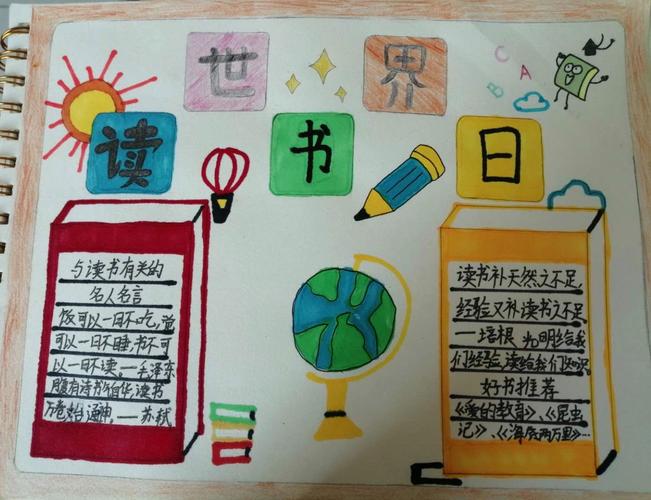 世界
读书日
C
A
B
与读书有关的
名人名言
饭可以一日不吃,觉
可以一日不睡,书不可
以一日不读。—毛泽东
腹有诗书气自华,读书
万卷始通神。——苏轼
读书补天然之不足,
经验又补读书之不足。
——培根 光明给我
们经验,读给我们知识。
好书推荐
《爱的教育》、《昆虫
记》、《海底两万里》…